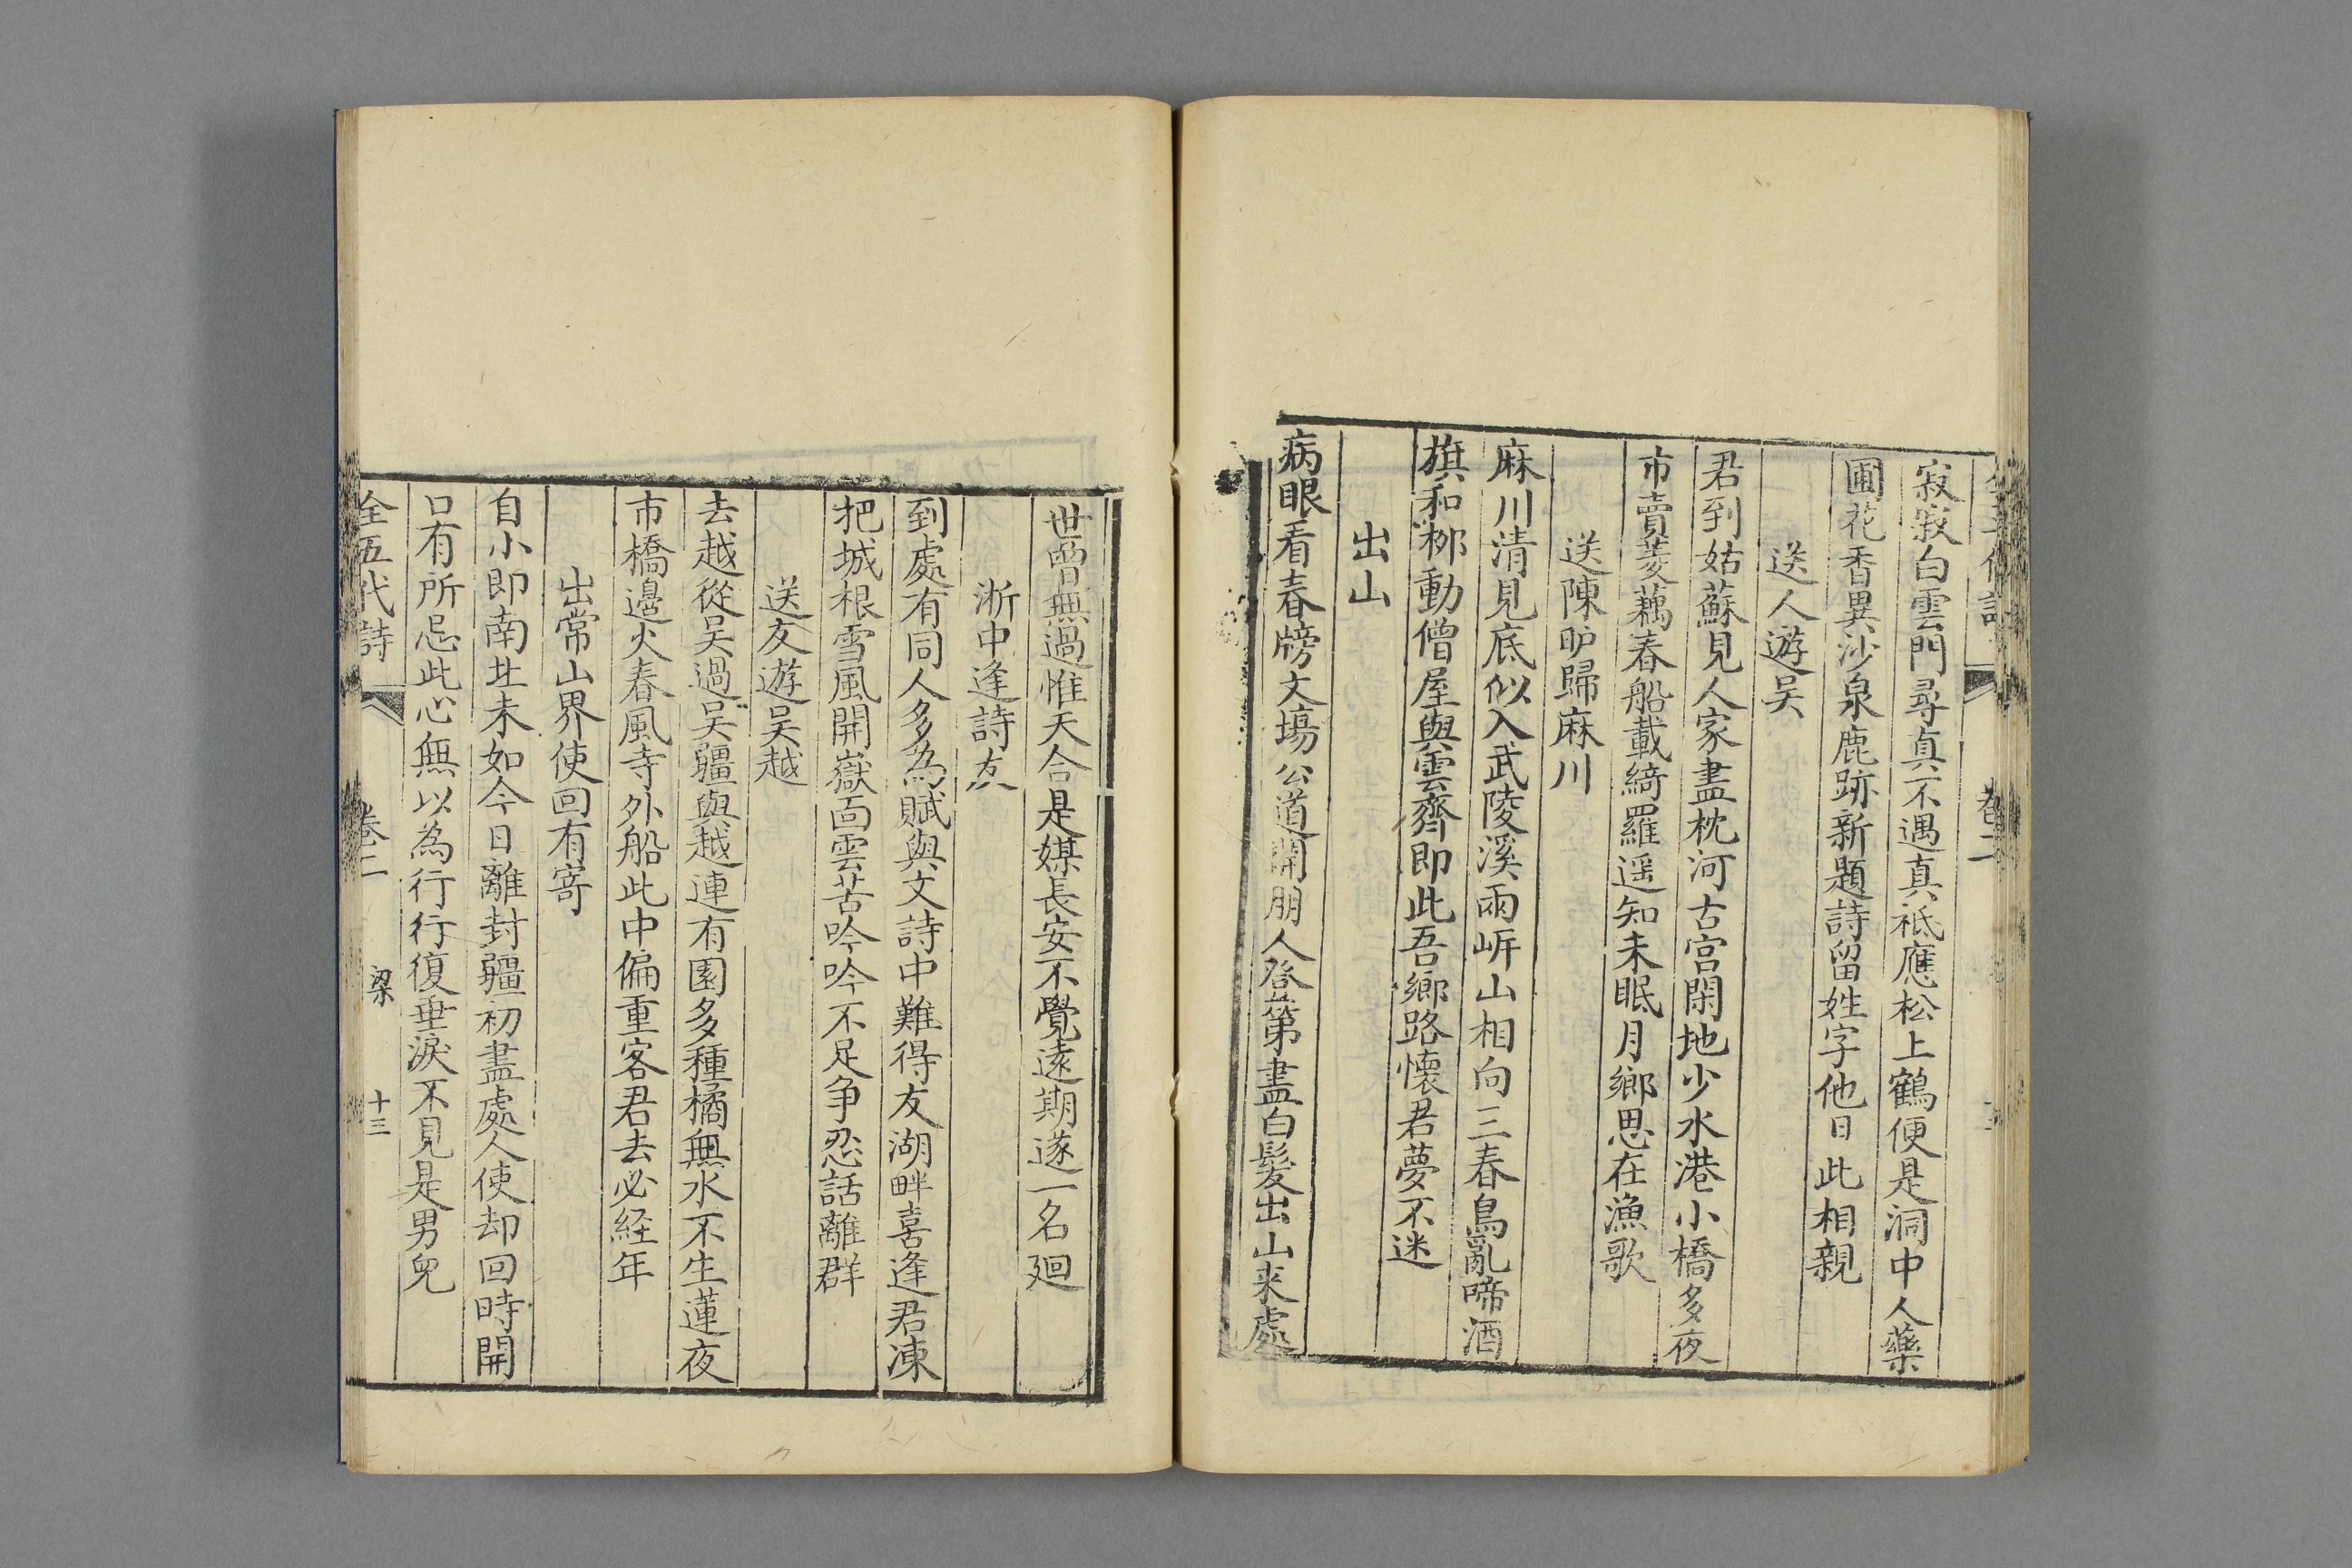 寂寂白雲門尋真不遇真祗應松上鶴便是洞中人藥
圃花香異沙泉鹿跡新題詩留姓字他日此相親
送人遊吳
君到姑蘇見人家盡枕河古宮閑地少水港小橋多夜
市賣菱藕春船載綺羅遥知未眠月鄉思在漁歌
送陳旷歸麻川
麻川清見底似入武陵溪兩岍山相向三春鳥亂啼酒
旗和桞動僧屋與雲齊即此吾鄉路懷君夢不迷
出山
病眼看春牓文塲公道開朋人登第盡白髮出山来處
世曾無過惟天合是媒長安不覺遠期遂一名廻
浙中逢詩友
到處有同人多為賦與文詩中難得友湖畔喜逢君凍
把城根雪風開嶽面雲苦吟吟不足争忍話離群
送友遊吳越
去越從吳過吳疆與越連有園多種橘無水不生蓮夜
市橋邉火春風寺外船此中偏重客君去必経年
出常山界使回有寄
自小即南北未如今日離封疆初盡處人使却回時開
口有所忌此心無以為行行復垂淚不見是男兒
全五代詩 卷二 梁 十三